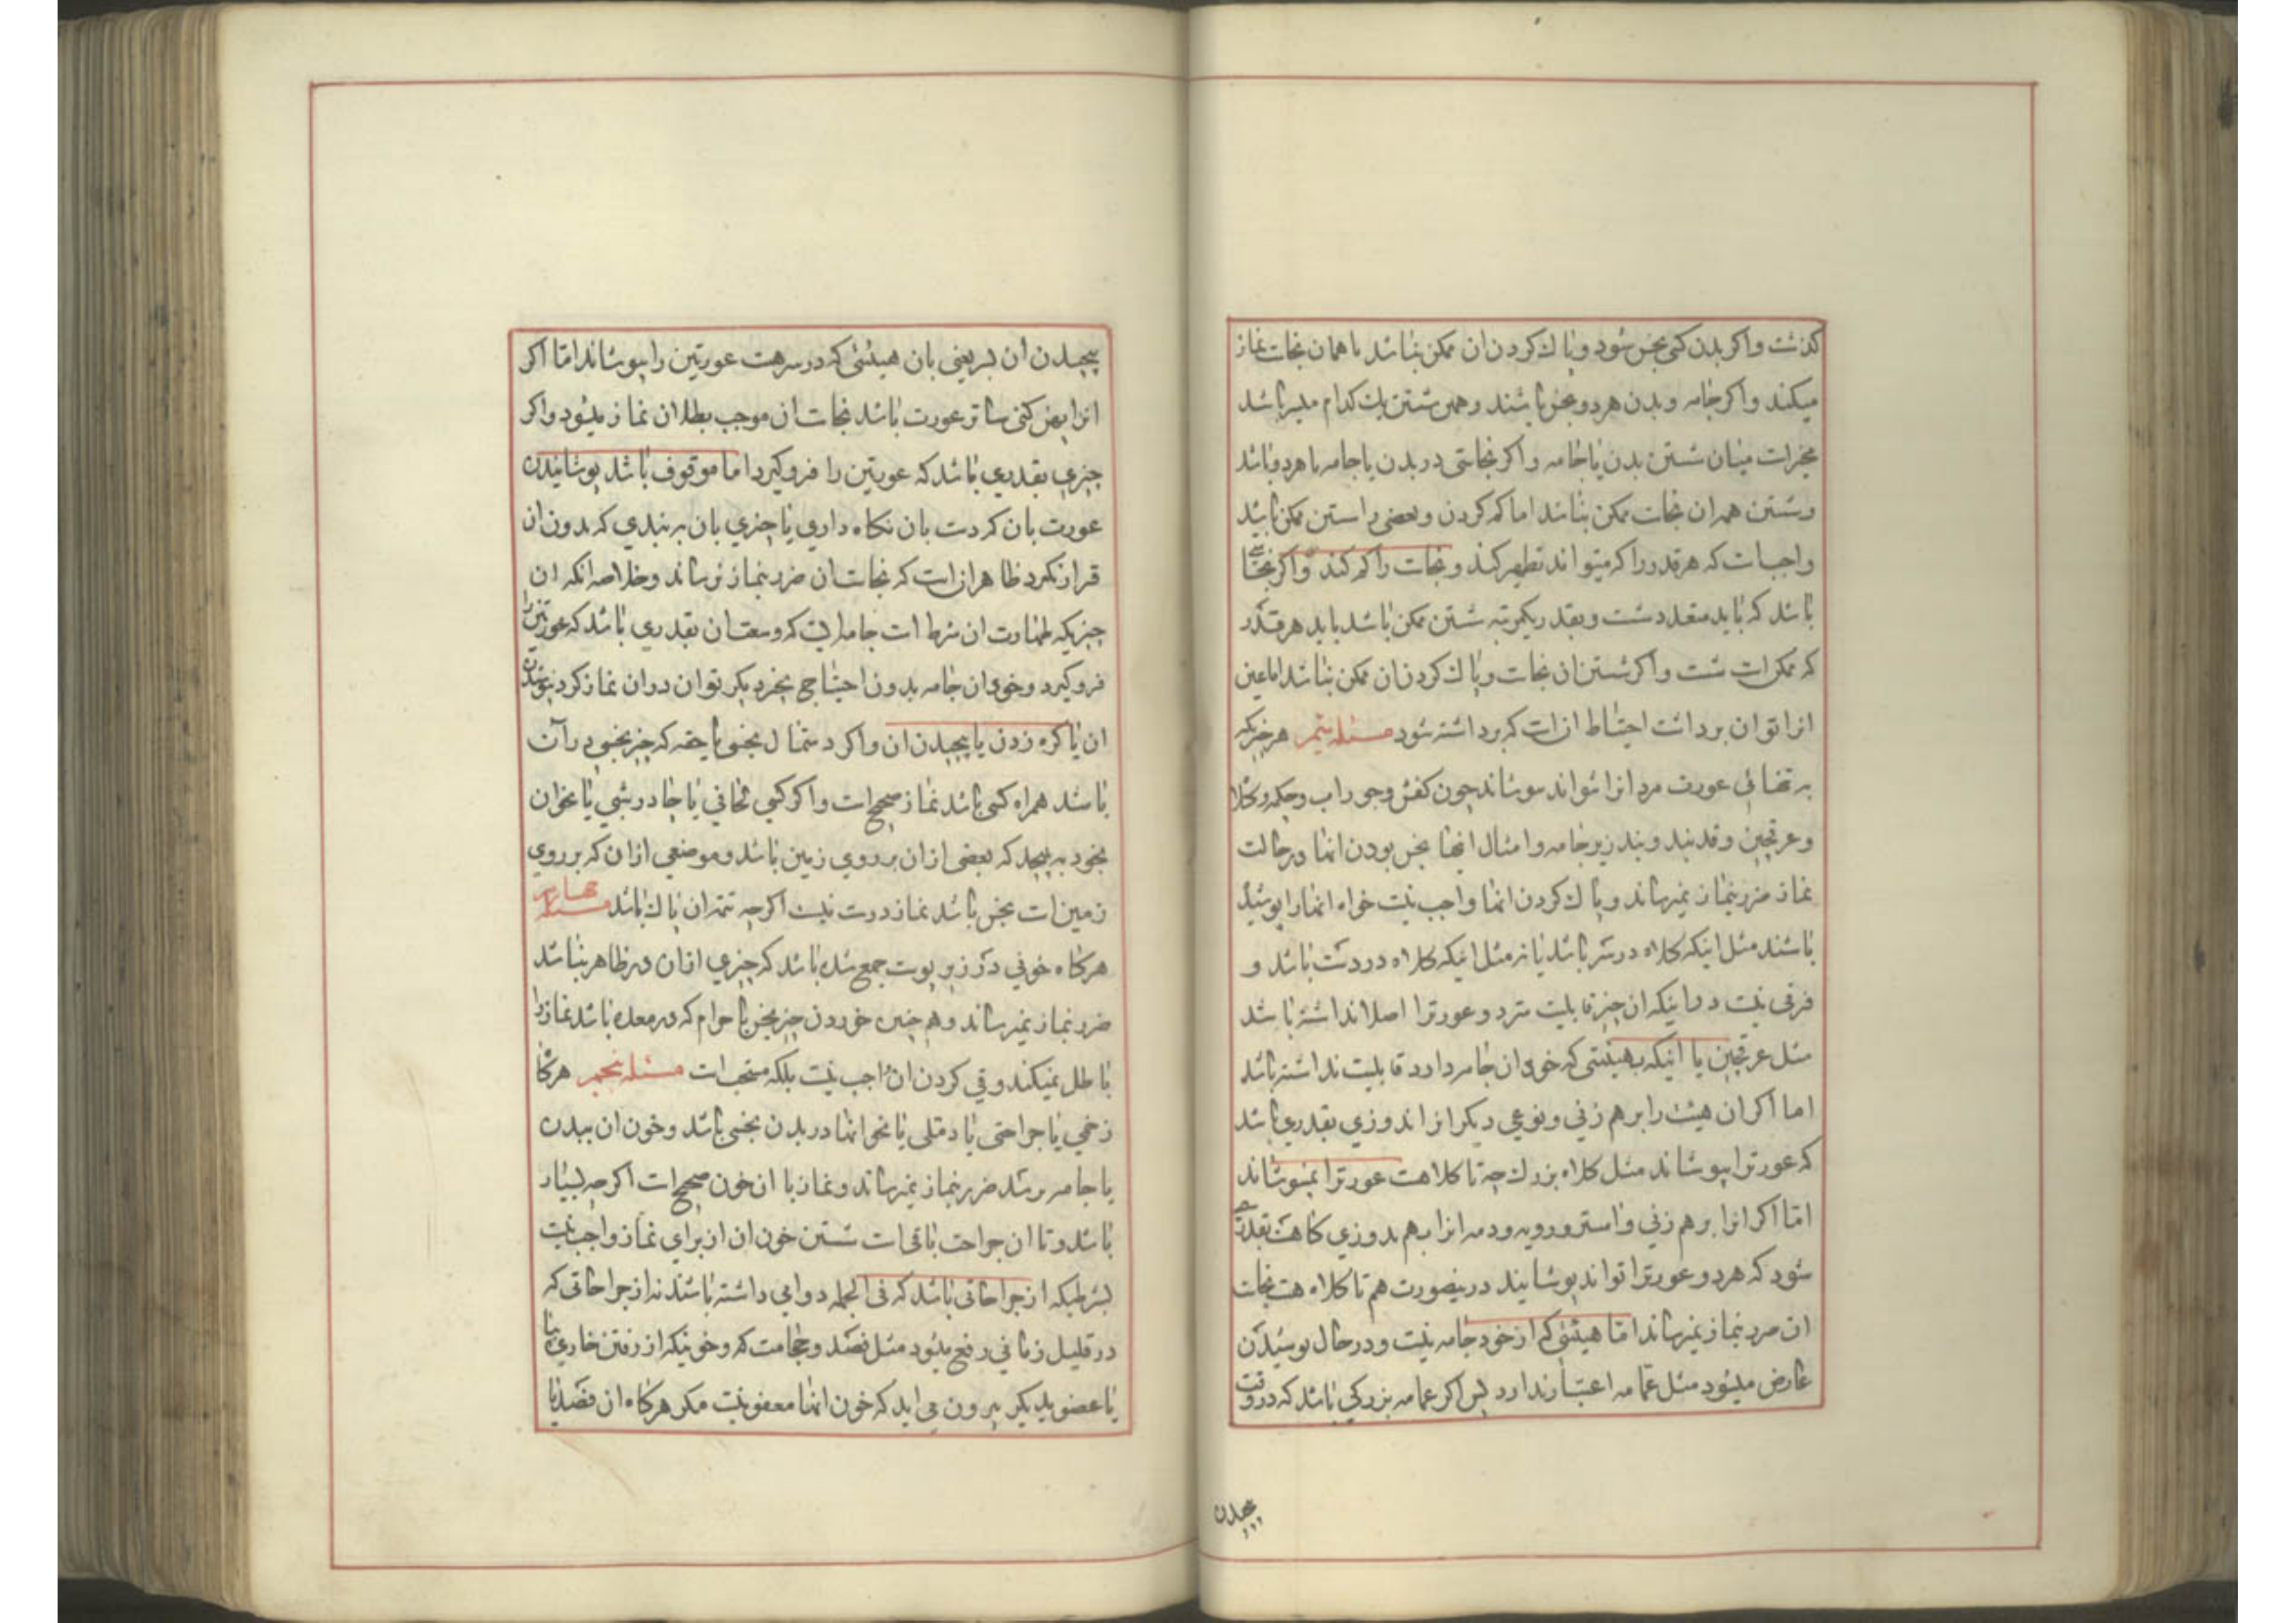 کذشت واکر بدن کسی نجس شود و پاک کردن ان ممکن نباشد با همان نجاست نماز
میکند واکر جامه و بدن هر دو نجس باشند و همین شستن یک کدام میسر باشد
مخیرات میان شستن بدن یا جامه واکر نجاستی در بدن یا جامه یا هر دو باشد
وشستن همه ان نجاست ممکن نباشد اما کم کردن و بعضی را شستن ممکن باشد
واجبست که هر قدر را که میتواند تطهیر کند و نجاست را کم کند واکر نجاستی
باشد که باید متعدد شست و بقدر یکمرتبه شستن ممکن باشد باید هر قدر
که ممکن است شست واکر شستن ان نجاست و پاک کردن ان ممکن نباشد اما عین
انرا توان برداشت احتیاط انست که برداشته شود مسئله هر چیزیکه
به تنهائی عورت مرد انرا نتواند پوشاند چون کفش وجوراب وچکمه وکلاه
وعرقچین و قدبند و بند زیرجامه و امثال انها نجس بودن انها در حالت
نماز ضرر بنماز نمیرساند و پاک کردن انها واجب نیست خواه انها را پوشیده
باشند مثل اینکه کلاه در سر باشد یا نه مثل اینکه کلاه در دست باشد و
فرقی نیست در اینکه ان چیز قابلیت ستر دو عورترا اصلا نداشته باشد
مثل عرقچین یا اینکه بهیئتی که خود ان جامه دارد قابلیت نداشته باشد
اما اکر ان هیئت را بر هم زنی و نوعی دیکر انرا اندوزی بقدری باشد
که عورترا بپوشاند مثل کلاه بزرک چه تا کلاهست عورترا نمیپوشاند
امّا اکر انرا بر هم زنی و استر و رویه ودمه انرا بهم بدوزی کاهست بقدری
شود که هر دو عورترا تواند پوشانید درینصورت هم تا کلاه هست نجاست
ان ضرر بنماز نمیرساند امّا هیئتی که از خود جامه نیست و در حال پوشیدن
عارض میشود مثل عمّامه اعتبار ندارد پس اکر عمامه بزرکی باشد که در وقت
پیچیدن
پیچیدن ان بسر یعنی بان هیئتی که در سر هست عورتین را بپوشاند امّا اکر
انرا پهن کنی ساتر عورت باشد نجاست ان موجب بطلان نماز میشود واکر
چیزی بقدری باشد که عورتین را فروکیرد اما موقوف باشد پوشانیدن
عورت بان که دست بان نکاه داری یا چیزی بان به بندی که بدون ان
قرار نکیرد ظاهر انست که نجاست ان ضرر بنماز نرساند وخلاصه انکه ان
چیزیکه طهارت ان شرط است جامه ایست که وسعت ان بقدری باشد که عورتین را
فروکیرد و خود ان جامه بدون احتیاج بچیز دیکر توان در ان نماز کرد نبستن
ان یا کره زدن یا پیچیدن ان واکر دستمال نجسی یا حقه که چیز نجسی در آن
باشد همراه کسی باشد نماز صحیح است واکر کسی لحافی یا چادر شبی یا نحوان
بخود به پیچد که بعضی از ان بر روی زمین باشد و موضعی از ان که بر روی
زمین است نجس باشد نماز درست نیست اکرچه تتمه ان پاک باشد مسئله چهارم
هرکاه خونی در زیر پوست جمع شده باشد که چیزی از ان در ظاهر نباشد
ضرر بنماز نمیرساند و هم چنین خوردن چیز نجس یا حرام که در معده باشد نماز را
باطل نمیکند و قی کردن ان واجب نیست بلکه مستحب است مسئله پنجم هرکاه
زخمی یا جراحتی یا دملی یا نحو انها در بدن نجس باشد و خون ان ببدن
یا جامه برسد ضرر بنماز نمیرساند و نماز با ان خون صحیح است اکرچه بسیار
باشد و تا ان جراحت باقی است شستن خون ان از برای نماز واجب نیست
بشرطیکه از جراحاتی باشد که فی الجمله دوامی داشته باشند نه از جراحاتی که
در قلیل زمانی رفع میشود مثل فصد و حجامت که و خونیکه از رفتن خاری بپا
یا عضو دیکر بیرون می اید که خون انها معفو نیست مکر هرکاه ان فصد یا